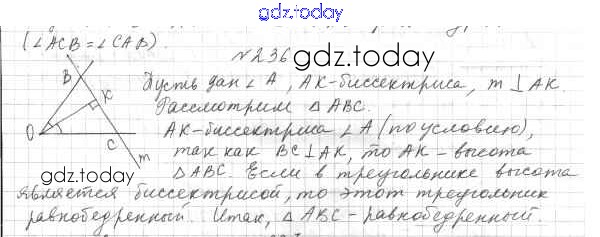 gdz.today
(∠ACB = ∠CAB).
№236
gdz.today
B
K
O
C
m
gdz.today
Пусть дан ∠A, AK-биссектриса, m ⊥ AK.
Рассмотрим △ABC.
AK-биссектриса ∠A (по условию),
так как BC ⊥ AK, то AK - высота
△ABC. Если в треугольнике высота
является биссектрисой, то этот треугольник
равнобедренный. Итак, △ABC - равнобедренный.